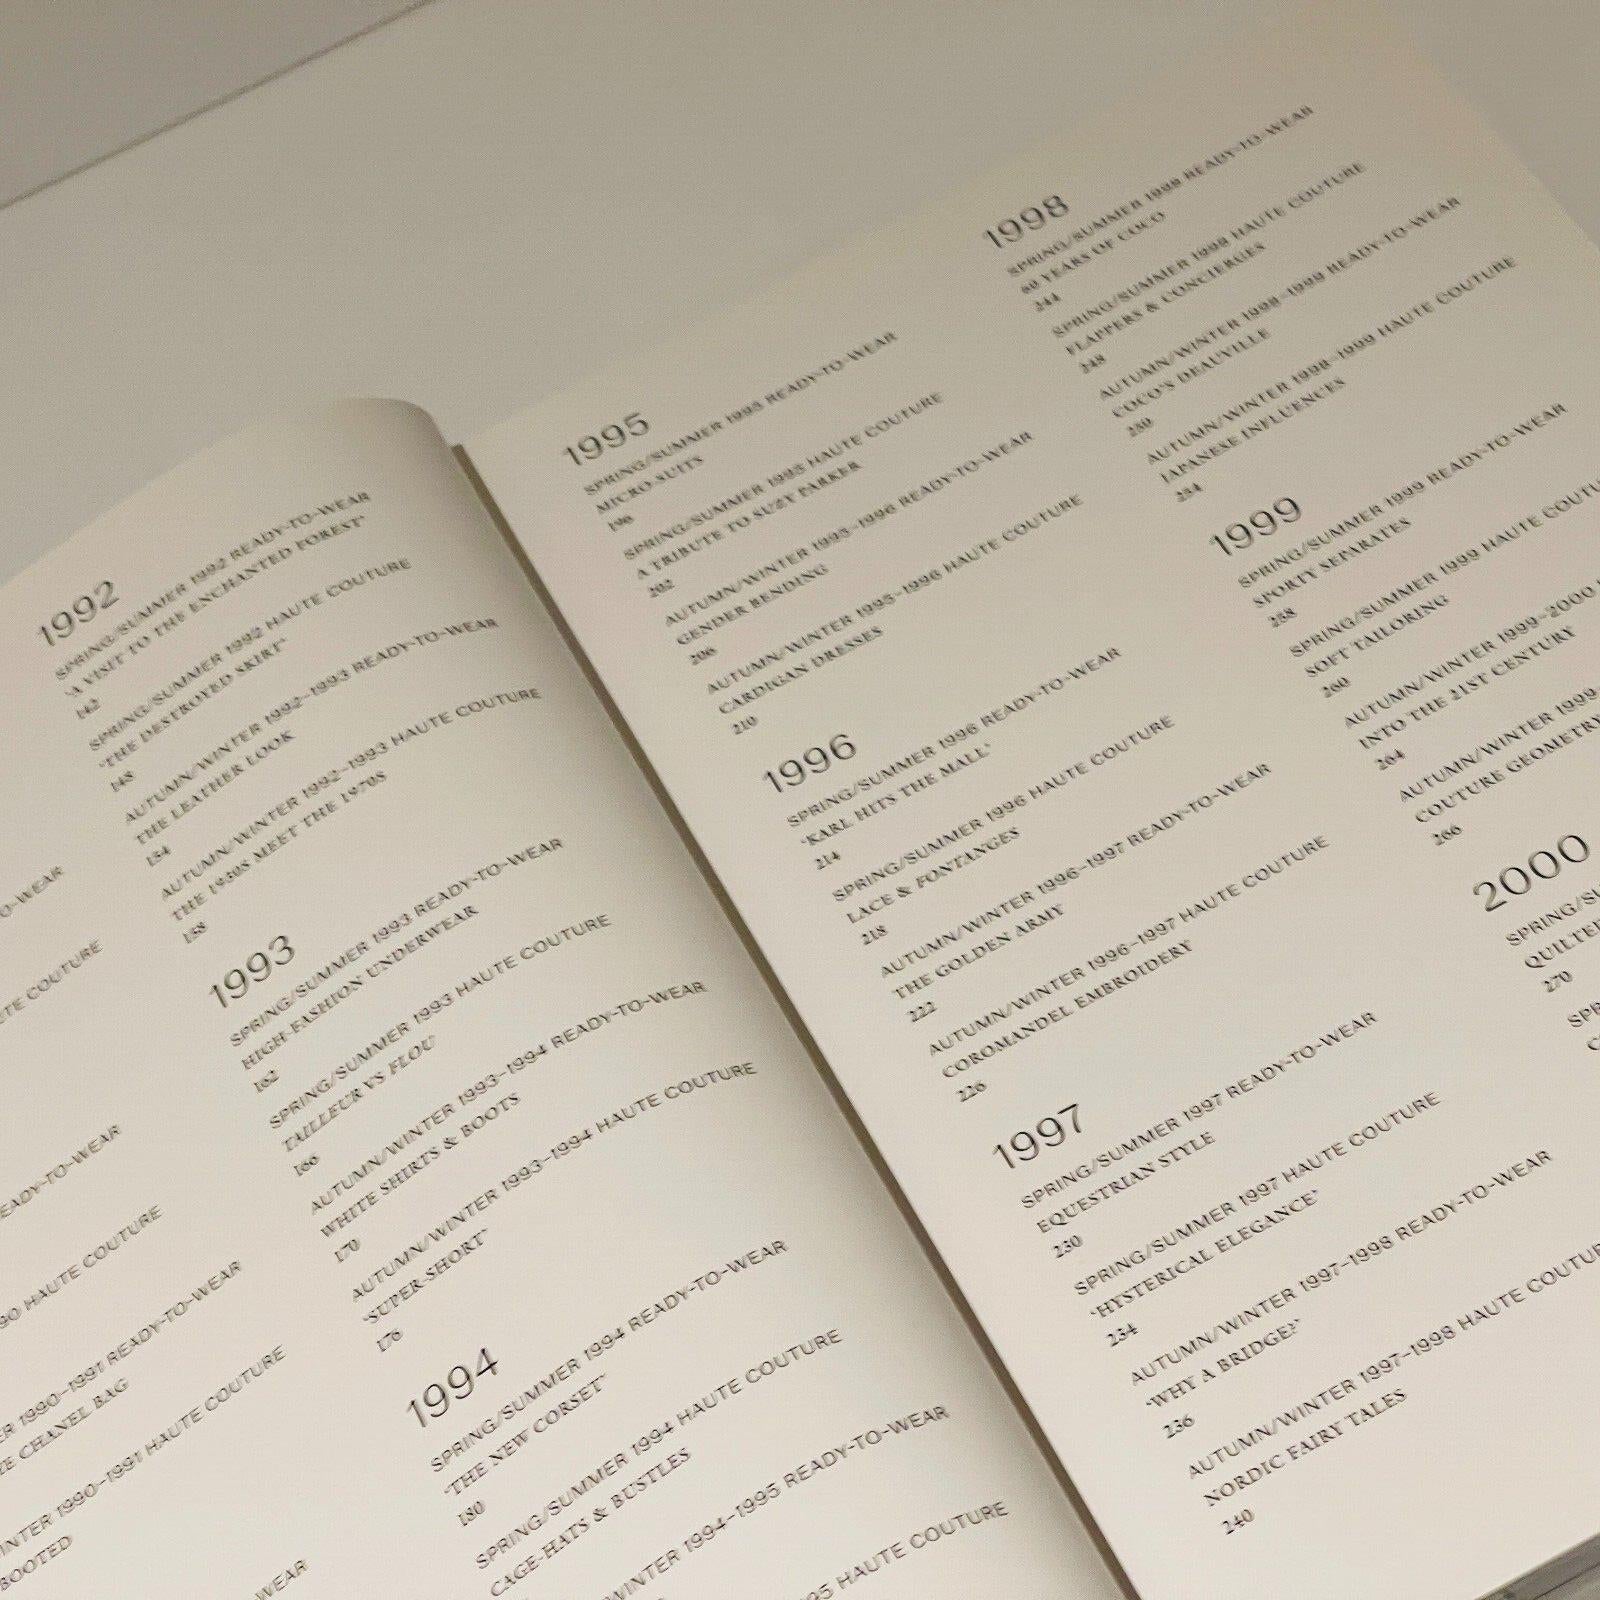 O-WEAR
TE COUTURE
READY-TO-WEAR
90 HAUTE COUTURE
ER 1990–1991 READY-TO-WEAR
CHANEL BAG
WINTER 1990–1991 HAUTE COUTURE
BOOTED
WEAR
1992
SPRING/SUMMER 1992 READY-TO-WEAR
'A VISIT TO THE ENCHANTED FOREST'
142
SPRING/SUMMER 1992 HAUTE COUTURE
'THE DESTROYED SKIRT'
148
AUTUMN/WINTER 1992–1993 READY-TO-WEAR
THE LEATHER LOOK
154
AUTUMN/WINTER 1992–1993 HAUTE COUTURE
THE 1930S MEET THE 1970S
158
1993
SPRING/SUMMER 1993 READY-TO-WEAR
HIGH-FASHION UNDERWEAR
162
SPRING/SUMMER 1993 HAUTE COUTURE
TAILLEUR VS FLOU
166
AUTUMN/WINTER 1993–1994 READY-TO-WEAR
WHITE SHIRTS & BOOTS
170
AUTUMN/WINTER 1993–1994 HAUTE COUTURE
'SUPER-SHORT'
176
1994
SPRING/SUMMER 1994 READY-TO-WEAR
'THE NEW CORSET'
180
SPRING/SUMMER 1994 HAUTE COUTURE
CAGE-HATS & BUSTLES
WINTER 1994–1995 READY-TO-WEAR
95 HAUTE COUTURE
1995
SPRING/SUMMER 1995 READY-TO-WEAR
MICRO-SUITS
196
SPRING/SUMMER 1995 HAUTE COUTURE
A TRIBUTE TO SUZY PARKER
202
AUTUMN/WINTER 1995–1996 READY-TO-WEAR
GENDER BENDING
206
AUTUMN/WINTER 1995–1996 HAUTE COUTURE
CARDIGAN DRESSES
210
1996
SPRING/SUMMER 1996 READY-TO-WEAR
'KARL HITS THE MALL'
214
SPRING/SUMMER 1996 HAUTE COUTURE
LACE & FONTANGES
218
AUTUMN/WINTER 1996–1997 READY-TO-WEAR
THE GOLDEN ARMY
222
AUTUMN/WINTER 1996–1997 HAUTE COUTURE
COROMANDEL EMBROIDERY
226
1997
SPRING/SUMMER 1997 READY-TO-WEAR
EQUESTRIAN STYLE
230
SPRING/SUMMER 1997 HAUTE COUTURE
'HYSTERICAL ELEGANCE'
234
AUTUMN/WINTER 1997–1998 READY-TO-WEAR
'WHY A BRIDGE?'
236
AUTUMN/WINTER 1997–1998 HAUTE COUTURE
NORDIC FAIRY TALES
240
1998
SPRING/SUMMER 1998 READY-TO-WEAR
60 YEARS OF COCO
244
SPRING/SUMMER 1998 HAUTE COUTURE
FLAPPERS & CONCIERGES
248
AUTUMN/WINTER 1998–1999 READY-TO-WEAR
COCO'S DEAUVILLE
250
AUTUMN/WINTER 1998–1999 HAUTE COUTURE
JAPANESE INFLUENCES
254
1999
SPRING/SUMMER 1999 READY-TO-WEAR
SPORTY SEPARATES
258
SPRING/SUMMER 1999 HAUTE COUTU
SOFT TAILORING
260
AUTUMN/WINTER 1999–2000
INTO THE 21ST CENTURY
264
AUTUMN/WINTER 1999
COUTURE GEOMETRY
266
2000
SPRING/SU
QUILTED
270
SPR